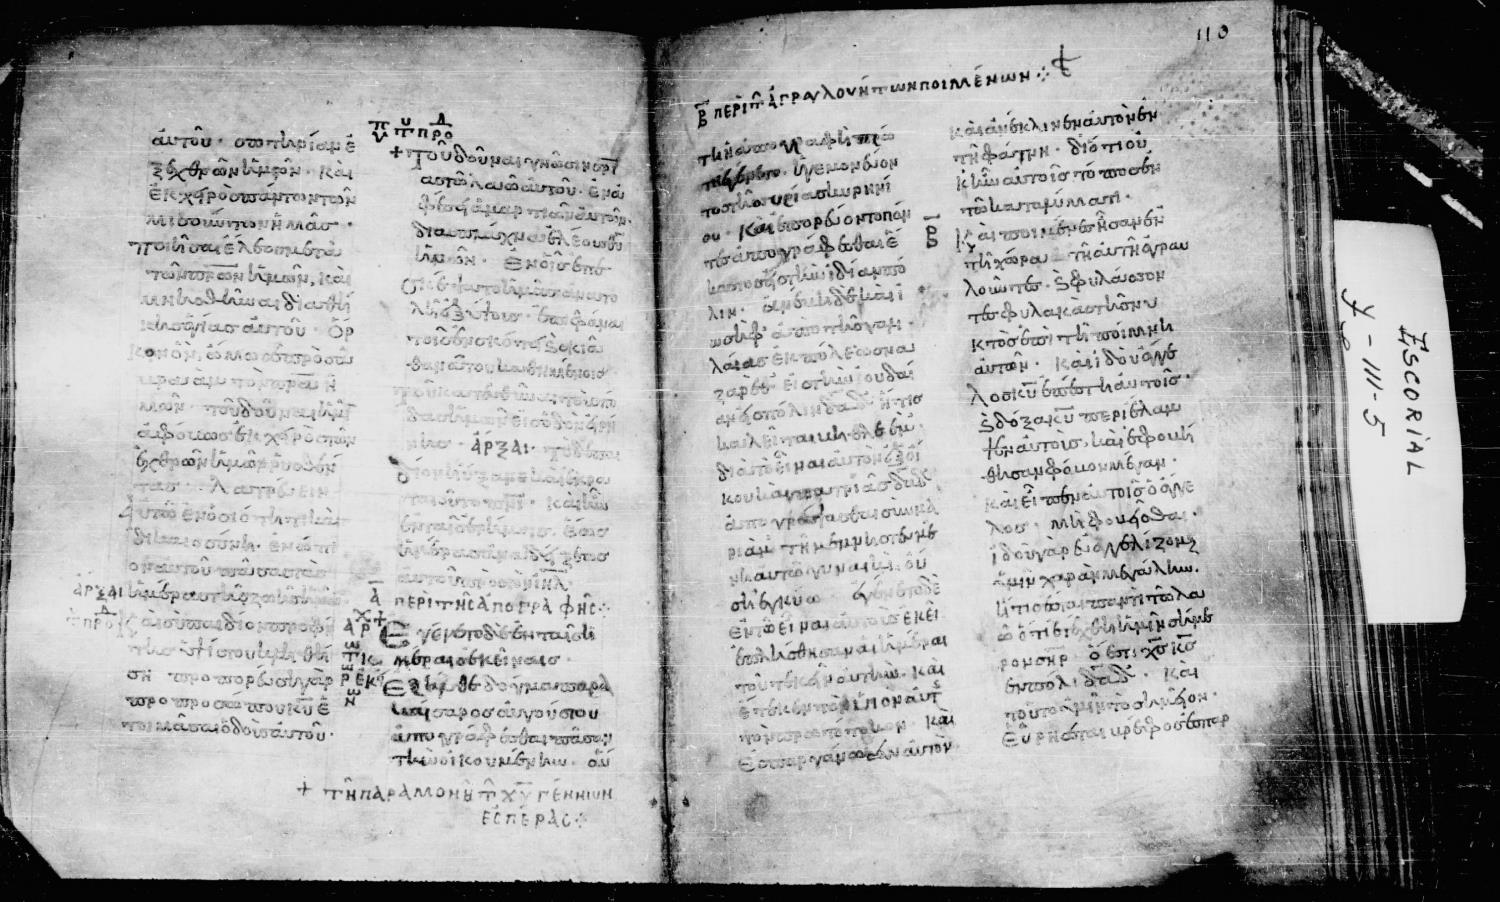 αὐτοῦ· σωτηρίαν ἐ
ξ ἐχθρῶν ἡμῶν· καὶ
ἐκ χειρὸς πάντων τῶν
μισούντων ἡμᾶς·
ποιῆσαι ἔλεος μετὰ
τῶν πρων ἡμῶν, καὶ
μνησθῆναι διαθή
κης ἁγίας αὐτοῦ· ὅρ
κον ὃν ὤμοσε πρὸς
τὸν πρα ἡ
μῶν· τοῦ δοῦναι ἡμῖν
ἀφόβως ἐκ χειρὸς τῶν
ἐχθρῶν ἡμῶν ῥυσθέν
τας· λατρεύειν
αὐτῷ ἐν ὁσιότητι καὶ
δικαιοσύνη· ἐνώπι
ον αὐτοῦ πάσας τὰς
ἀρξαι ἡμέρας τῆς ζωῆς ἡμῶν
Καὶ σὺ παιδίον προφή
της ὑψίστου κληθή
ση· προπορεύση γὰρ
πρὸ προσώπου κυ ἑ
τοιμάσαι ὁδοὺς αὐτοῦ·
+ τοῦ δοῦναι γνῶσιν σρι
ας τῶ λαῶ αὐτοῦ· ἐν ἀ
φέσει ἁμαρτιῶν αὐτῶν·
διὰ σπλάχνα ἐλέους θυ
ἡμῶν· ἐν οἷς ἐπε
σκέψατο ἡμᾶς ἀνατο
λὴ ἐξ ὕψους· ἐπιφᾶναι
τοῖς ἐν σκότει καὶ σκιᾶ
θανάτου καθημένοις·
τοῦ κατευθῦναι τοὺς πό
δας ἡμῶν εἰς ὁδὸν εἰρή
νης· ἀρξαι· τὸ δὲ παι
δίον ηὔξανε καὶ ἐκρα
ταιοῦτο πνι· καὶ ἦν
ἐν ταῖς ἐρήμοις· ἕως
ἡμέρας ἀναδείξεως
αὐτοῦ πρὸς τὸν ιηλ·
Α ΠΕΡΙ ΤΗΣ ΑΠΟΓΡΑΦΗΣ:
Ἐγένετο δὲ ἐν ταῖς ἡ
μέραις ἐκείναις·
ἐξῆλθε δόγμα παρὰ
καίσαρος αὐγούστου
ἀπογράφεσθαι πᾶσαν
τὴν οἰκουμένην· αὕ
+ ΤΗ ΠΑΡΑΜΟΝΗ Τ ΧΥ ΓΕΝΝΗΣΙΝ
ΕΣΠΕΡΑΣ:
110
Β ΠΕΡΙ Τ ΑΓΡΑΥΛΟΥΝΤΩΝ ΠΟΙΜΕΝΩΝ:
τη ἡ ἀπογραφὴ πρώ
τη ἐγένετο· ἡγεμονεύον
τος τῆς συρίας κυρηνί
ου· καὶ ἐπορεύοντο πάν
τες ἀπογράφεσθαι ἕ
καστος εἰς τὴν ἰδίαν πό
λιν· ἀνέβη δὲ καὶ ἰ
ωσὴφ ἀπὸ τῆς γαλι
λαίας ἐκ πόλεως να
ζαρέθ· εἰς τὴν ἰουδαί
αν εἰς πόλιν δαδ ἥτις
καλεῖται βηθλεέμ·
διὰ τὸ εἶναι αὐτὸν ἐξ οἴ
κου καὶ πατριᾶς δαδ
ἀπογράψασθαι σὺν μα
ριὰμ τῆ μεμνηστευμέ
νη αὐτῶ γυναικὶ, οὔ
ση ἐγκύω· ἐγένετο δὲ
ἐν τῶ εἶναι αὐτοὺς ἐκεῖ
ἐπλήσθησαν αἱ ἡμέραι
τοῦ τεκεῖν αὐτὴν· καὶ
ἔτεκεν τὸν υἱὸν αὐτῆς
τὸν πρωτότοκον· καὶ
ἐσπαργάνωσεν αὐτὸν·
καὶ ἀνέκλινεν αὐτὸν ἐν
τῆ φάτνη· διότι οὐ
κ ἦν αὐτοῖς τόπος ἐν
τῶ καταλύματι·
Β Καὶ ποιμένες ἦσαν ἐν
τῆ χώρα τῆ αὐτῆ ἀγραυ
λοῦντες· καὶ φυλάσσον
τες φυλακὰς τῆς νυ
κτὸς ἐπὶ τὴν ποίμνην
αὐτῶν· καὶ ἰδοὺ ἄγγε
λος κυ ἐπέστη αὐτοῖς·
καὶ δόξα κυ περιέλαμ
ψεν αὐτοὺς, καὶ ἐφοβή
θησαν φόβον μέγαν·
καὶ εἶπεν αὐτοῖς ὁ ἄγγε
λος· μὴ φοβεῖσθαι·
ἰδοὺ γὰρ εὐαγγελίζομαι
ὑμῖν χαρὰν μεγάλην·
ἥτις ἔσται παντὶ τῶ λα
ῶ ὅτι ἐτέχθη ὑμῖν σήμε
ρον σηρ ὅ ἐστι χς κς
ἐν πόλει δαδ· καὶ
τοῦτο ὑμῖν τὸ σημεῖον·
Εὑρήσεται βρέφος ἐσπαρ
ESCORIAL
Ψ-III-5